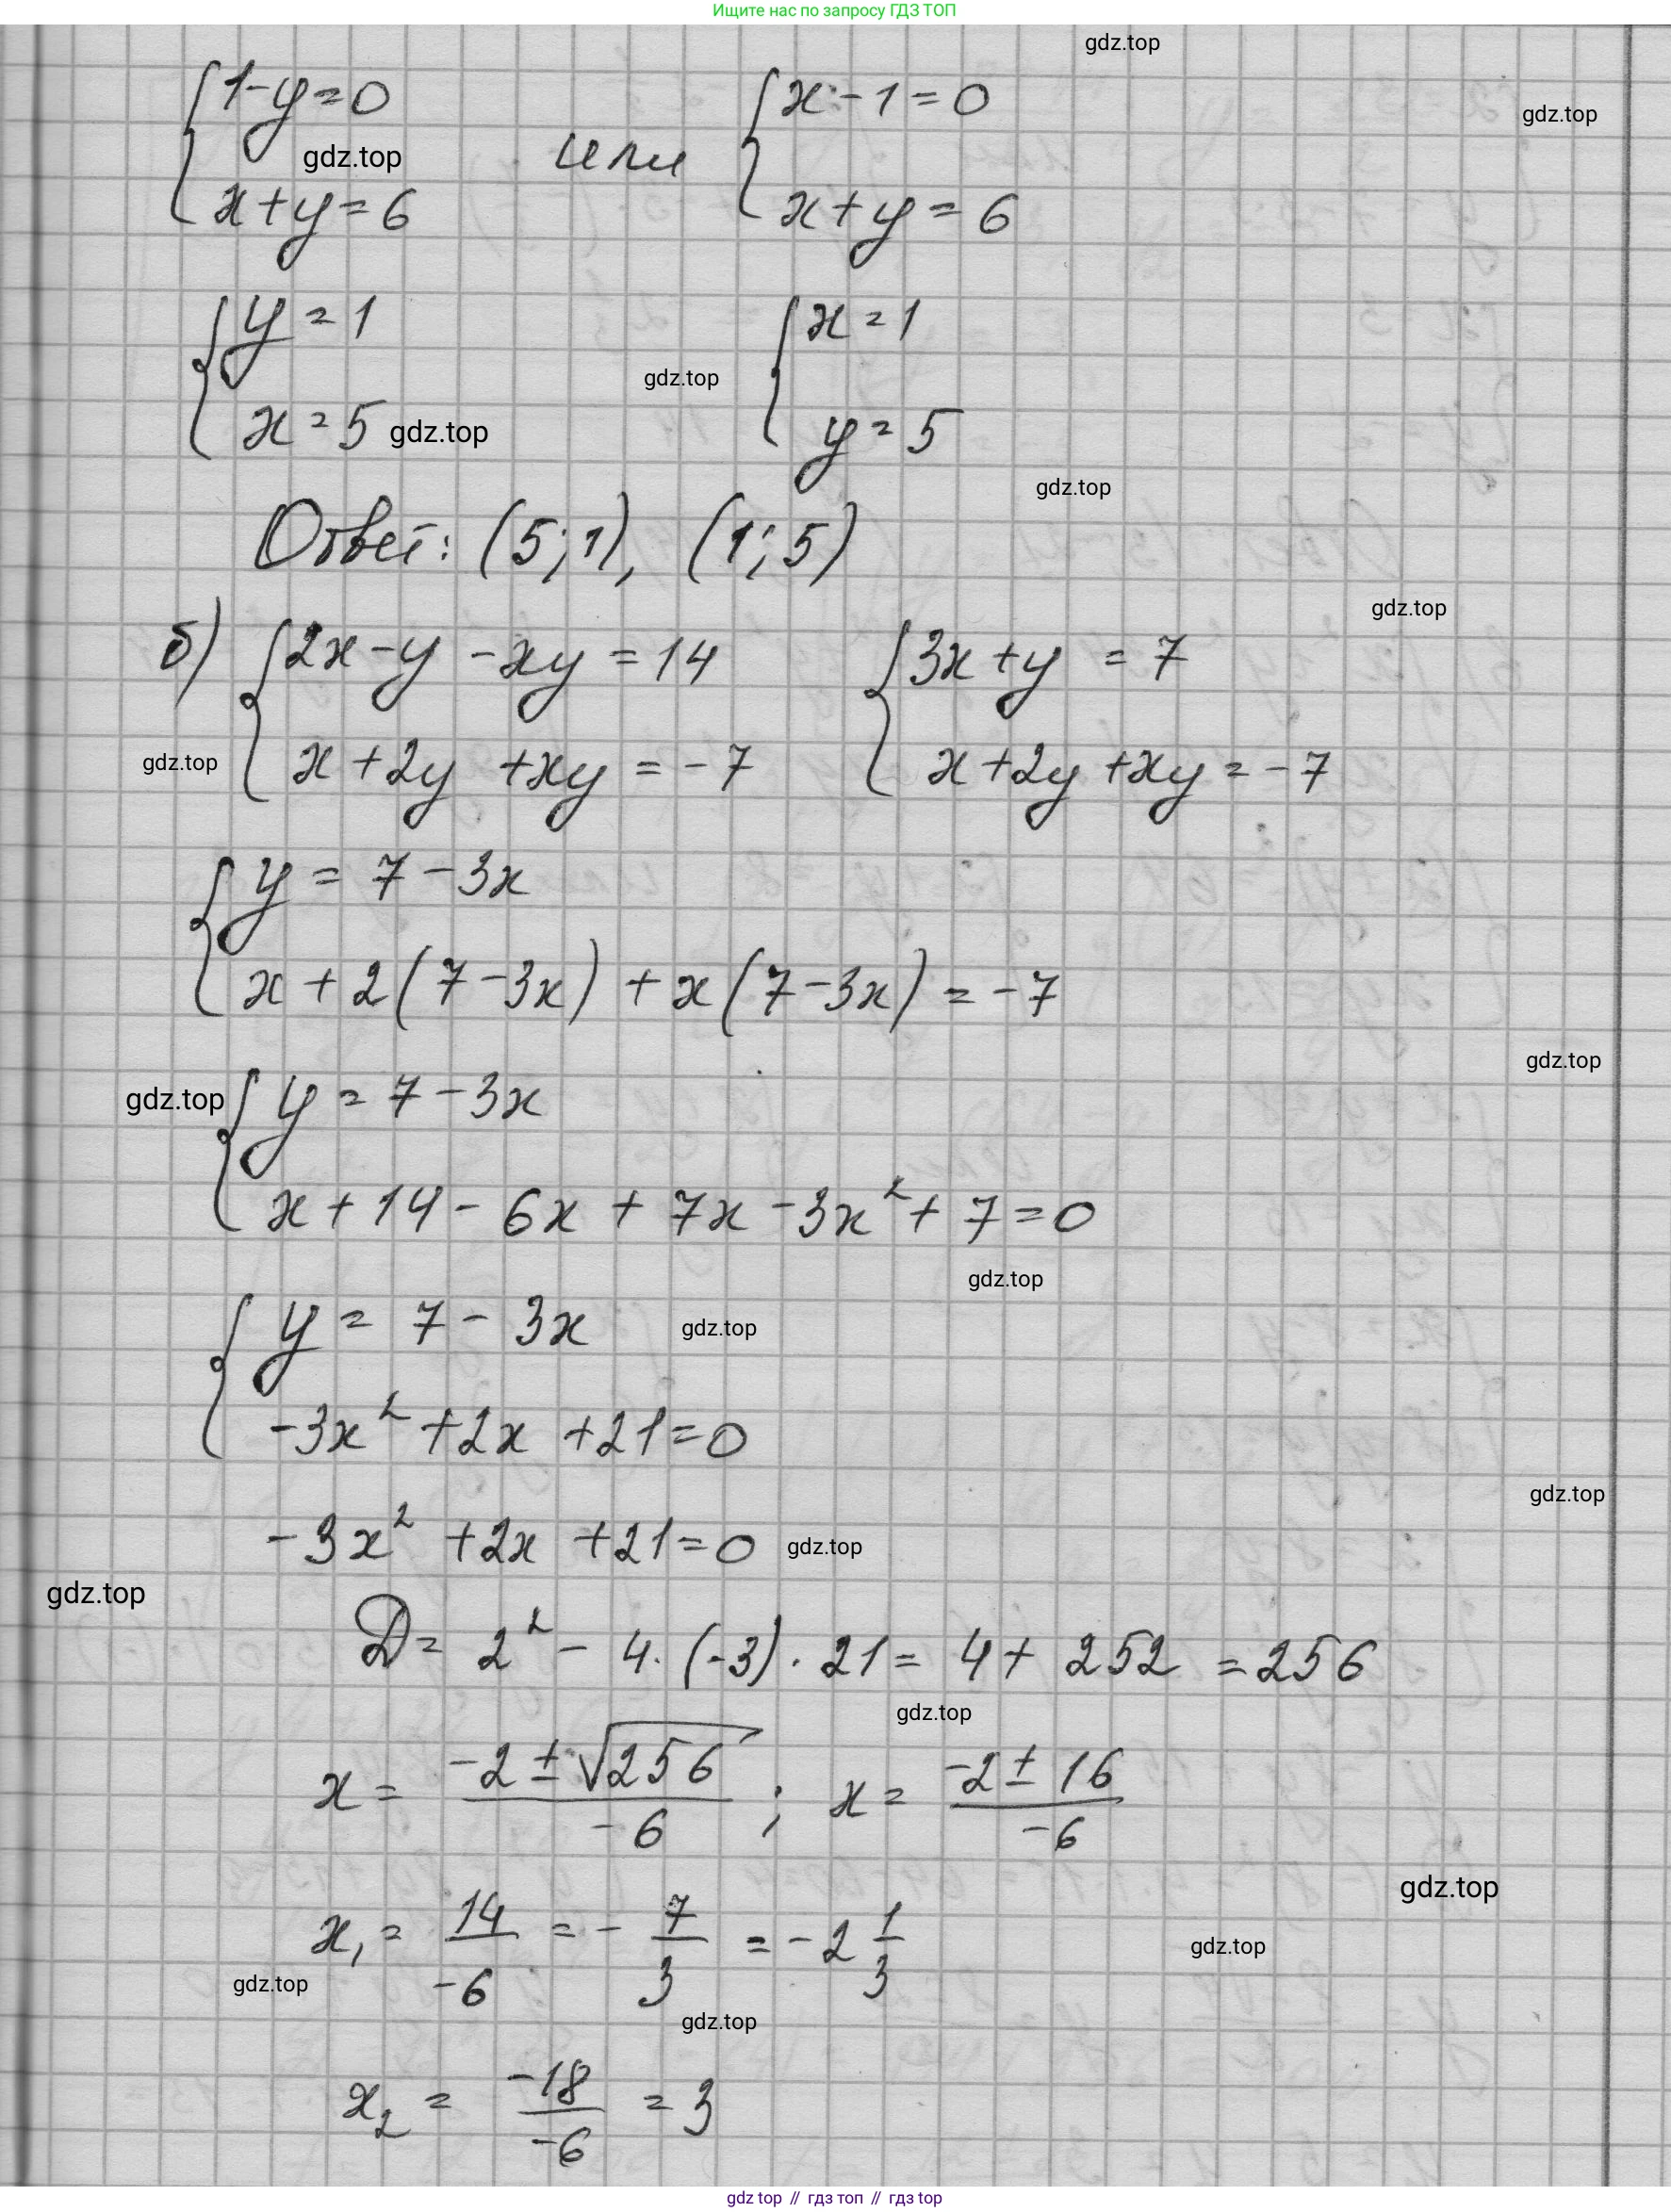 Ищите нас по запросу ГДЗ ТОП
gdz.top
{1-y=0 или {x-1=0
gdz.top
gdz.top
x+y=6 x+y=6
{y=1 {x=1
gdz.top
x=5 gdz.top y=5
gdz.top
Ответ: (5;1), (1;5)
gdz.top
б) {2x-y-xy=14 {3x+y=7
gdz.top x+2y+xy=-7 x+2y+xy=-7
{y=7-3x
x+2(7-3x)+x(7-3x)=-7
gdz.top
gdz.top {y=7-3x
x+14-6x+7x-3x²+7=0
gdz.top
{y=7-3x gdz.top
-3x²+2x+21=0
gdz.top
-3x²+2x+21=0 gdz.top
gdz.top
D=2²-4·(-3)·21=4+252=256
gdz.top
x=(-2±√256)/-6; x=(-2±16)/-6
gdz.top
x₁=14/-6=-7/3=-2 1/3
gdz.top
gdz.top
gdz.top
x₂=-18/-6=3
gdz top // гдз топ // gdz top